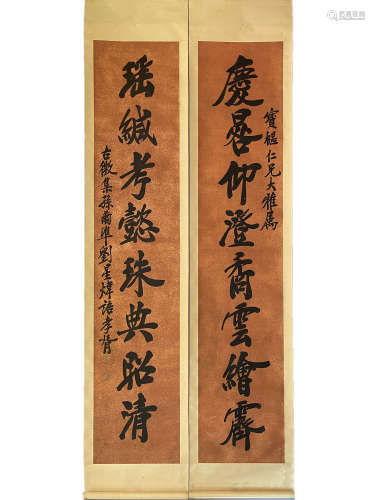 慶晷仰澄矞雲繪霽
寶楹仁兄大雅屬
瑶緘考懿珠典昭清
古微集孫爾準劉星煒語孝胥